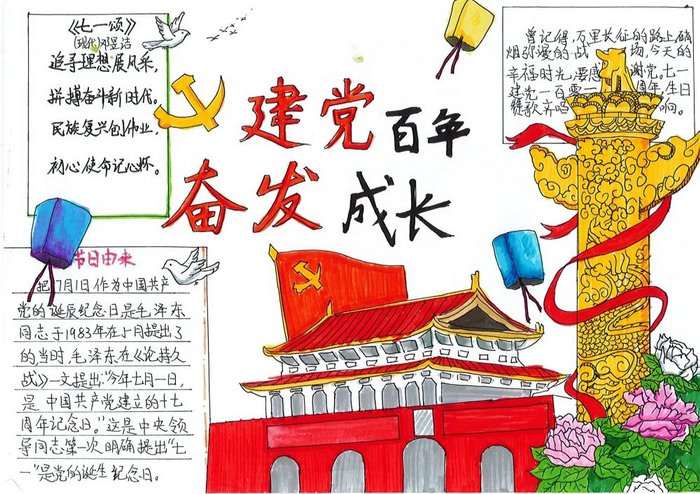 《七一颂》
(现代)邓昱洁
追寻理想展风采,
拼搏奋斗新时代。
民族复兴创伟业,
初心使命记心怀。
建党百年
奋发成长
曾记得,万里长征的路上硝
烟弥漫的战 场,今天的
幸福时光,要感 谢党,七一
建党一百零一 周年,生日
赞歌齐唱 响。
节日由来
把7月1日作为中国共产
党的诞辰纪念日是毛泽东
同志于1983年在5月提出了
的当时,毛泽东在《论持久
战》一文提出:“今年七月一日,
是中国共产党建立的十七
周年纪念日。”这是中央领
导同志第一次明确提出“七
一”是党的诞生纪念日。